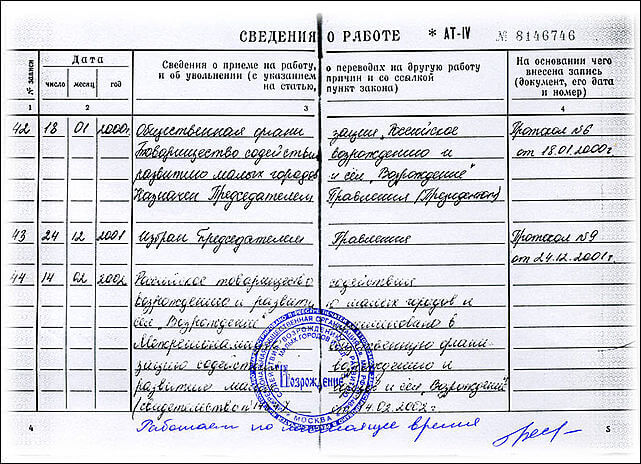 СВЕДЕНИЯ О РАБОТЕ * АТ-IV № 8146746
№ записи
Дата
число месяц год
Сведения о приеме на работу, о переводах на другую работу
и об увольнении (с указанием причин и со ссылкой
на статью, пункт закона)
На основании чего
внесена запись
(документ, его дата
и номер)
1 2 3 4
42 18 01 2000г. Общественная организация „Российское Протокол №6
Товарищество содействия возрождению и от 18.01.2000г.
развитию малых городов и сёл „Возрождение"
Назначен Председателем Правления (Президентом)
43 24 12 2001 Избран Председателем Правления Протокол №9
от 24.12.2001г.
44 14 02 2002 Российское товарищество содействия
возрождению и развитию малых городов и
сёл „Возрождение" в
Межрегиональную органи-
зацию содействия возрождению и
развитию и сёл „Возрождений"
(свидетельство 14.02.2002г.
Возрождение
МОСКВА
4 Работает по настоящее время 5